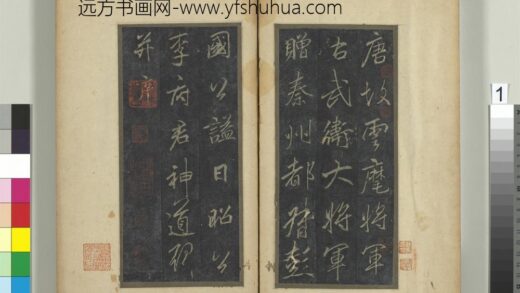 远方书画网-www.yfshuhua.com
唐故雲麾將軍
右武衛大將軍
贈秦州都督彭
國公謚曰昭公
李府君神道碑
并序
1